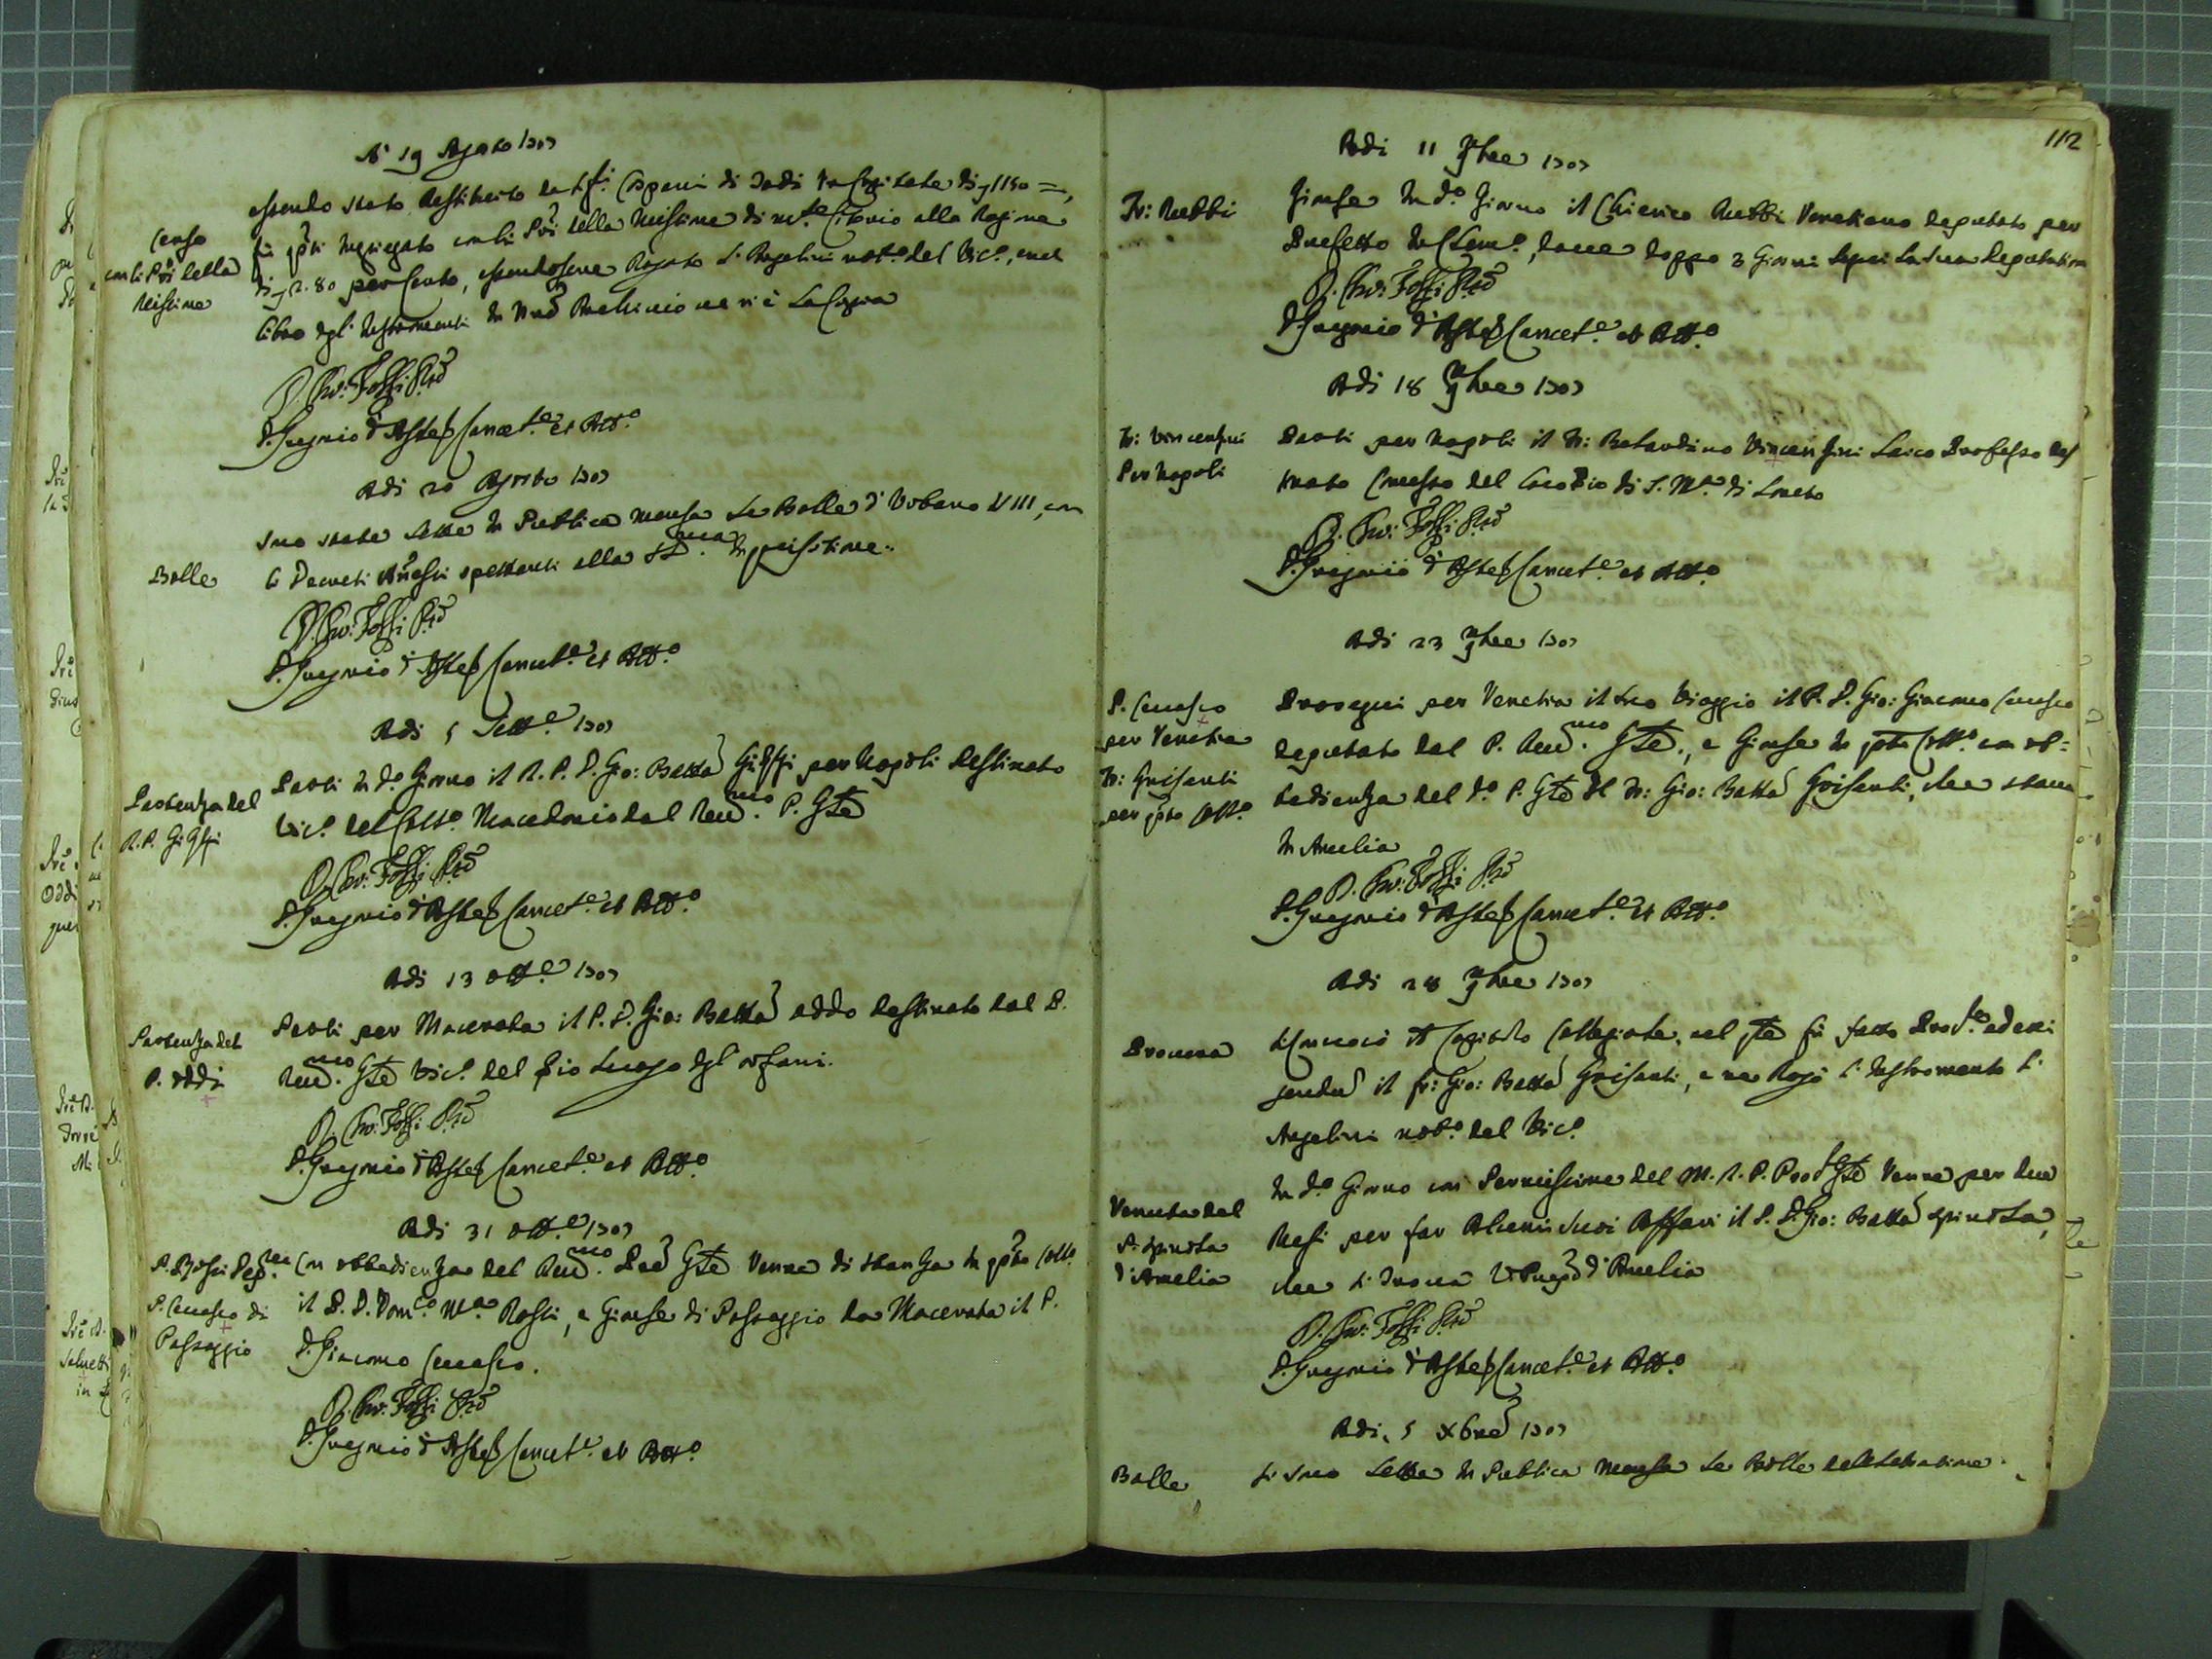 A' 19 Agosto 1707
Censo
con li PPri della
Missione
essendo stato restituito da SSri Caspani di Todi la Capitale di 1150 =,
fu questi impiegato con li PPri della Missione di Mte Citorio alla Ragione
di 2.80 per Cento, essendosene Rogato l'Angelini notro del Vicro, e nel
libro degl'Instromenti in nro Archivio ve n'è la Copia
D. Chro: Fossi Prto
D. Gregorio d'Aste Cancelre et Atto
Adi 20 Agosto 1707
Bolle
sono state lette in Publica mensa le Bolle d'Urbano VIII, con
li Decreti annessi spettanti alla SSma Inquisitione.
D. Chro: Fossi Prto
D. Gregorio d'Aste Cancelre et Atto
Adi 5 Settre 1707
Partenza del
R.P.
Partì in do Giorno il R. P. D. Gio: Batta per Napoli destinato
Vicro del Collo Macedonio dal Rmo P. Gnle
D. Chro: Fossi Prto
D. Gregorio d'Aste Cancelre et Atto
Adi 13 ottre 1707
Partenza del
P. Oddi
Partì per Macerata il P. D. Gio: Batta Oddo destinato dal P.
Rmo Gnle Vicro del Pio Luogo degl'orfani.
D. Chro: Fossi Prto
D. Gregorio d'Aste Cancelre et Atto
Adi 31 ottre 1707
P. Rossi
P. Cevasco di
Passaggio
Con obbedienza del Rmo Pad Gnle Venne di stanza in qsto Collo
il P. D. Domco Ma Rossi, e Giunse di Passaggio da Macerata il P.
D. Giacomo Cevasco.
D. Chro: Fossi Prto
D. Gregorio d'Aste Cancelre et Atto
112
Adi 11 9bre 1707
Fr: Rubbi
Giunse in do Giorno il Chierico Rubbi Venetiano deputato per
Prefetto in Clemo, dove doppo 3 Giorni seguì la sua deputatione
D. Chro: Fossi Prto
D. Gregorio d'Aste Cancelre et Atto
Adi 18 9bre 1707
Fr: Vincenzini
Per Napoli
Partì per Napoli il Fr: Belardino Vincenzini Laico Professo des
tinato Comesso del Coco Pio di S. Ma di Loreto
D. Chro: Fossi Prto
D. Gregorio d'Aste Cancelre et Atto
Adi 23 9bre 1707
P. Cevasco
per Venetia
Fr: Grisanti
per qsto Collo
Proseguì per Venetia il suo Viaggio il P. D. Gio: Giacomo Cevasco
deputato dal P. Rmo Gnle, e Giunse in qsto Collo con ob=
bedienza del do P. Gnle il Fr: Gio: Batta Grisanti, che stava
in Amelia
D. Chro: Fossi Prto
D. Gregorio d'Aste Cancelre et Atto
Adi 28 9bre 1707
Procura
Convocò il Capitolo Collegiale, nel qle fu fatto Procre ad exi
gendum il fr: Gio: Batta Grisanti, e ne Rogò l'Instromento l'
Angelini noto del Vicro
Venuta del
P. Spinola
d'Amelia
In do Giorno con Permissione del M. R. P. Prole Gnle Venne per due
Mesi per far Alcuni suoi Affari il P. D. Gio: Batta Spinola,
che si Trova d'Amelia
D. Chro: Fossi Prto
D. Gregorio d'Aste Cancelre et Atto
Adi, 5 Xbre 1707
Bolle
Si sono Lette in Publica Mensa le Bolle